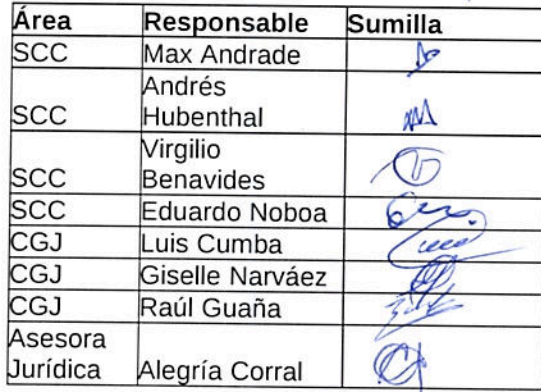 Área Responsable Sumilla
SCC Max Andrade
Andrés
SCC Hubenthal
Virgilio
SCC Benavides
SCC Eduardo Noboa
CGJ Luis Cumba
CGJ Giselle Narváez
CGJ Raúl Guaña
Asesora
Jurídica Alegría Corral